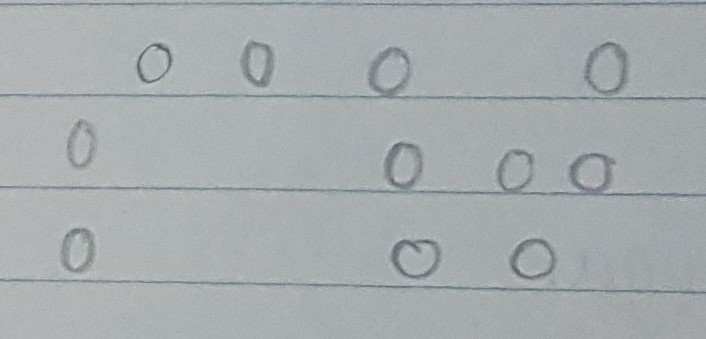 0 0 0 0
0 0 0 0
0 0 0